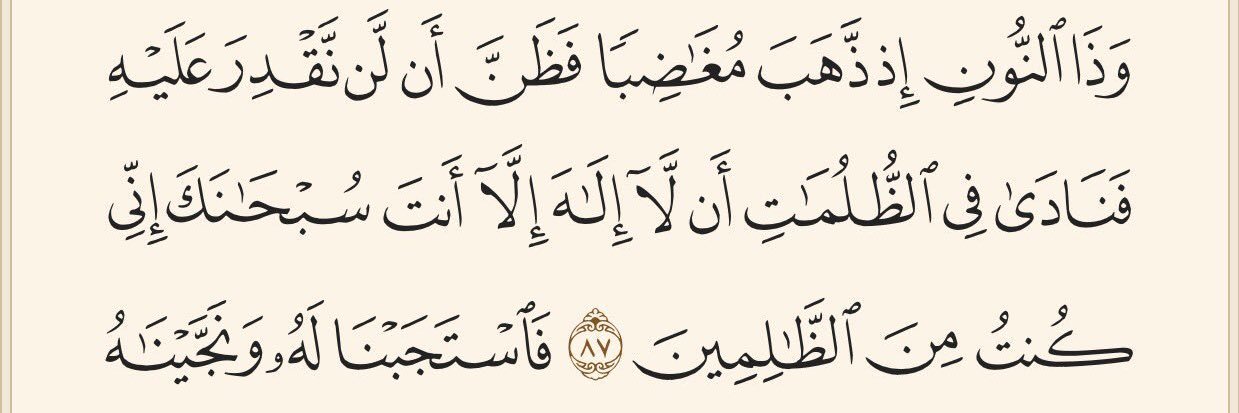 وَذَا ٱلنُّونِ إِذ ذَّهَبَ مُغَـٰضِبࣰا فَظَنَّ أَن لَّن نَّقۡدِرَ عَلَيۡهِ
فَنَادَىٰ فِی ٱلظُّلُمَـٰتِ أَن لَّاۤ إِلَـٰهَ إِلَّاۤ أَنتَ سُبۡحَـٰنَكَ إِنِّی
كُنتُ مِنَ ٱلظَّـٰلِمِینَ ٨٧ فَٱسۡتَجَبۡنَا لَهُۥ وَنَجَّیۡنَـٰهُ